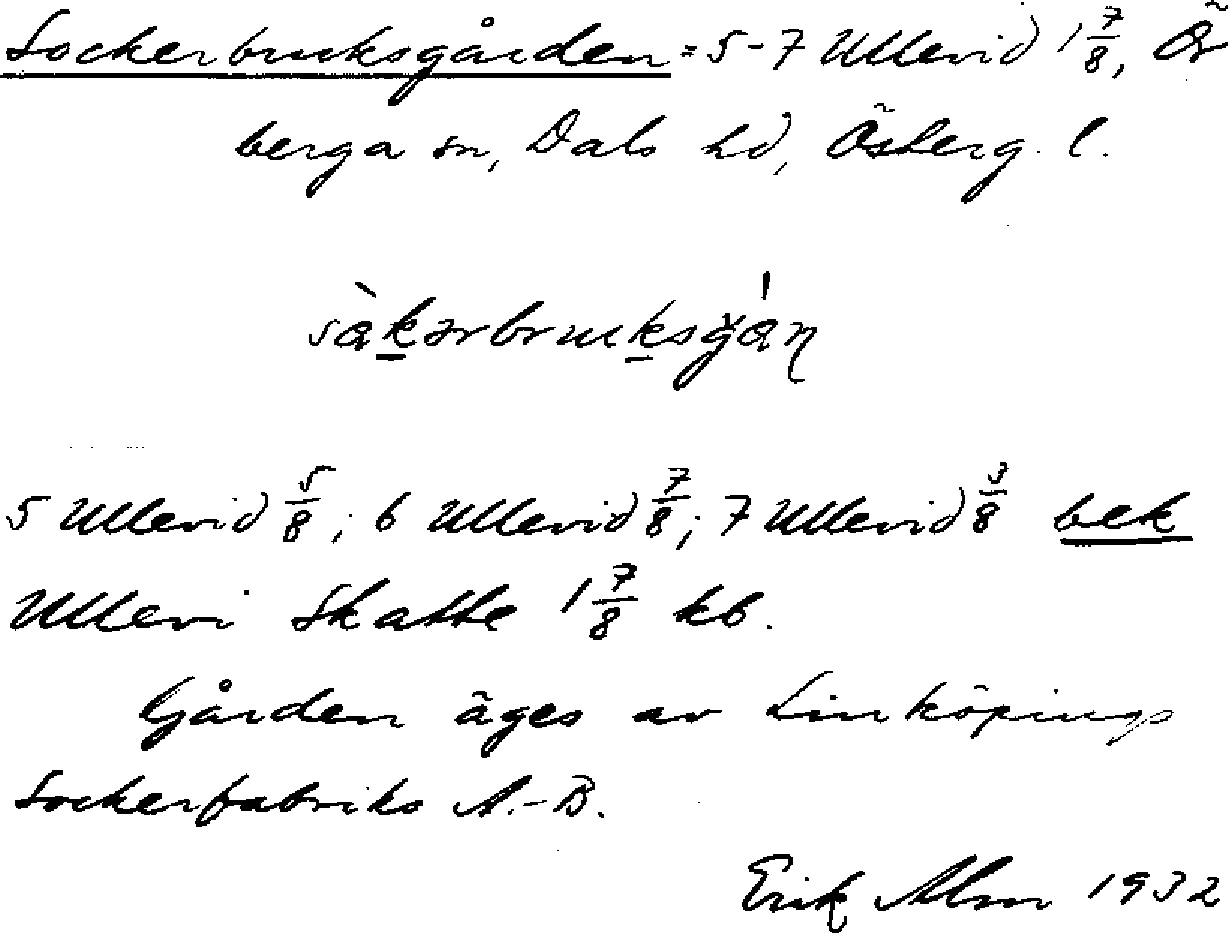 Sockerbruksgården = 5-7 Ullevid 1 7/8, Ör
berga sn, Dals hd, Österg. l.
sàkərbruksgá̩ṇ
5 Ullevid 5/8; 6 Ullevid 7/8; 7 Ullevid 3/8 bek
Ullevi Skatte 1 7/8 kb.
Gården äges av Linköpings
Sockerfabriks A.-B.
Erik Alm 1932